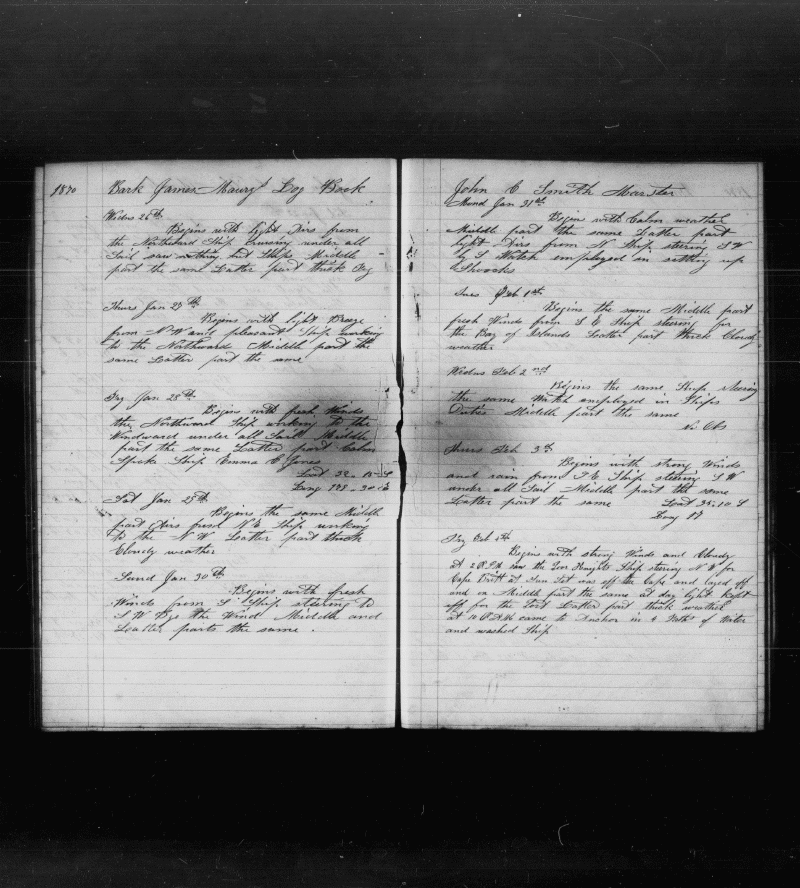 1870
Bark James Maury Log Book
Wednes 26th
Begins with light Airs from
the Northward Ship Cruising under all
Sail saw nothing but Ships Middle
part the same Latter part thick Fog
Thurs Jan 27th
Begins with light Breeze
from N W and pleasant Ship working
to the Northward Middle part the
same Latter part the same
Fry Jan 28th
Begins with fresh Winds
the Northward Ship working to the
Windward under all Sail Middle
part the same Latter part Calm
Spoke Ship Emma C Jones
Latt 32 S
Long
Sat Jan 29th
Begins the same Middle
part Airs from N E Ship working
to the N W Latter part thick
Cloudy weather
Sund Jan 30th
Begins with fresh
Winds from S Ship steering to
S W Bye the Wind Middle and
Latter parts the same .
John C Smith Marster
Mond Jan 31st
Begins with Calm weather
Middle part the same Latter part
light Airs from N Ship stering S W
by S Watch employed in setting up
Shrocks
Tues Feb 1st
Begins the same Middle part
fresh Winds from S E Ship steering for
the Bay of Islands Latter part thick Cloudy
weather
Wednes Feb 2nd
Begins the same Ship steering
the same Watch employed in Ships
Duties Middle part the same
No Obs
Thurs Feb 3th
Begins with strong Winds
and rain from Ship steering S W
under all Sail Middle part the same
Latter part the same Latt 35-10 S
Long
Fry Feb 4th
Begins with strong Winds and Cloudy
at 2 P.M. saw the Poor Knights Ship stering N W for
Cape Brett at Sun Set was off the Cape and layed off
and on Middle part the same at day light kept
off for the Port Latter part thick weather
at 10 came to Anchor in 4 Faths of Water
and washed Ship